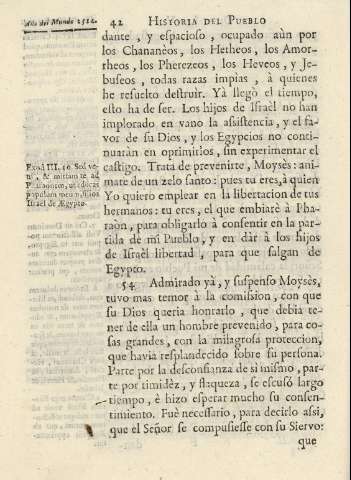 Año del Mundo 2514.
42 HISTORIA DEL PUEBLO
dante, y espacioso, ocupado aùn por
los Chananèos, los Hetheos, los Amor-
rheos, los Pherezeos, los Heveos, y Je-
buseos, todas razas impias, à quienes
he resuelto destruir. Yà llegò el tiempo,
esto ha de ser. Los hijos de Israèl no han
implorado en vano la assistencia, y el fa-
vor de su Dios, y los Egypcios no conti-
nuaràn en oprimirlos, sin experimentar el
castigo. Trata de prevenirte, Moysès: ani-
mate de un zelo santo: pues tu eres, à quien
Yo quiero emplear en la libertacion de tus
hermanos: tu eres, el que embiarè à Pha-
raòn, para obligarlo à consentir en la par-
tida de mi Pueblo, y en dàr à los hijos
de Israèl libertad, para que salgan de
Egypto.
Exod III. 10. Sed ve-
ni, & mittam te ad
Pharaonem, ut educas
populum meum, filios
Israel de Ægypto.
54 Admirado yà, y suspenso Moysès,
tuvo mas temor à la comision, con que
su Dios queria honrarlo, que debia te-
ner de ella un hombre prevenido, para co-
sas grandes, con la milagrosa proteccion,
que havia resplandecido sobre su persona.
Parte por la desconfianza de si mismo, par-
te por timidèz, y flaqueza, se escusò largo
tiempo, è hizo esperar mucho su consen-
timiento. Fuè necessario, para decirlo assi,
que el Señor se compusiesse con su Siervo:
que